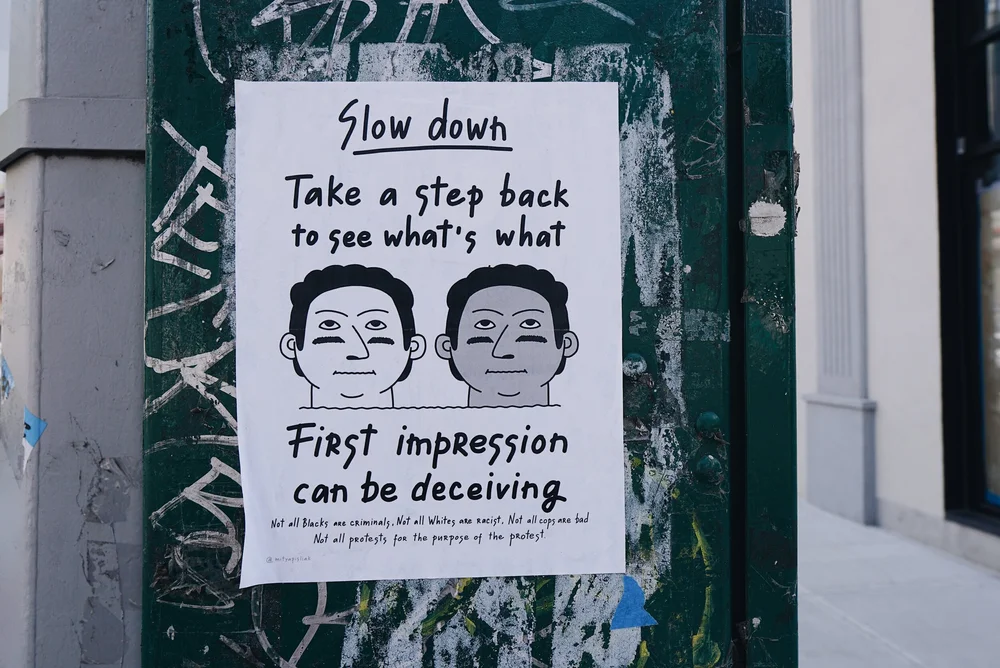 Slow down
Take a step back
to see what's what
First impression
can be deceiving
Not all Blacks are criminals, Not all Whites are racist, Not all cops are bad
Not all protests for the purpose of the protest.